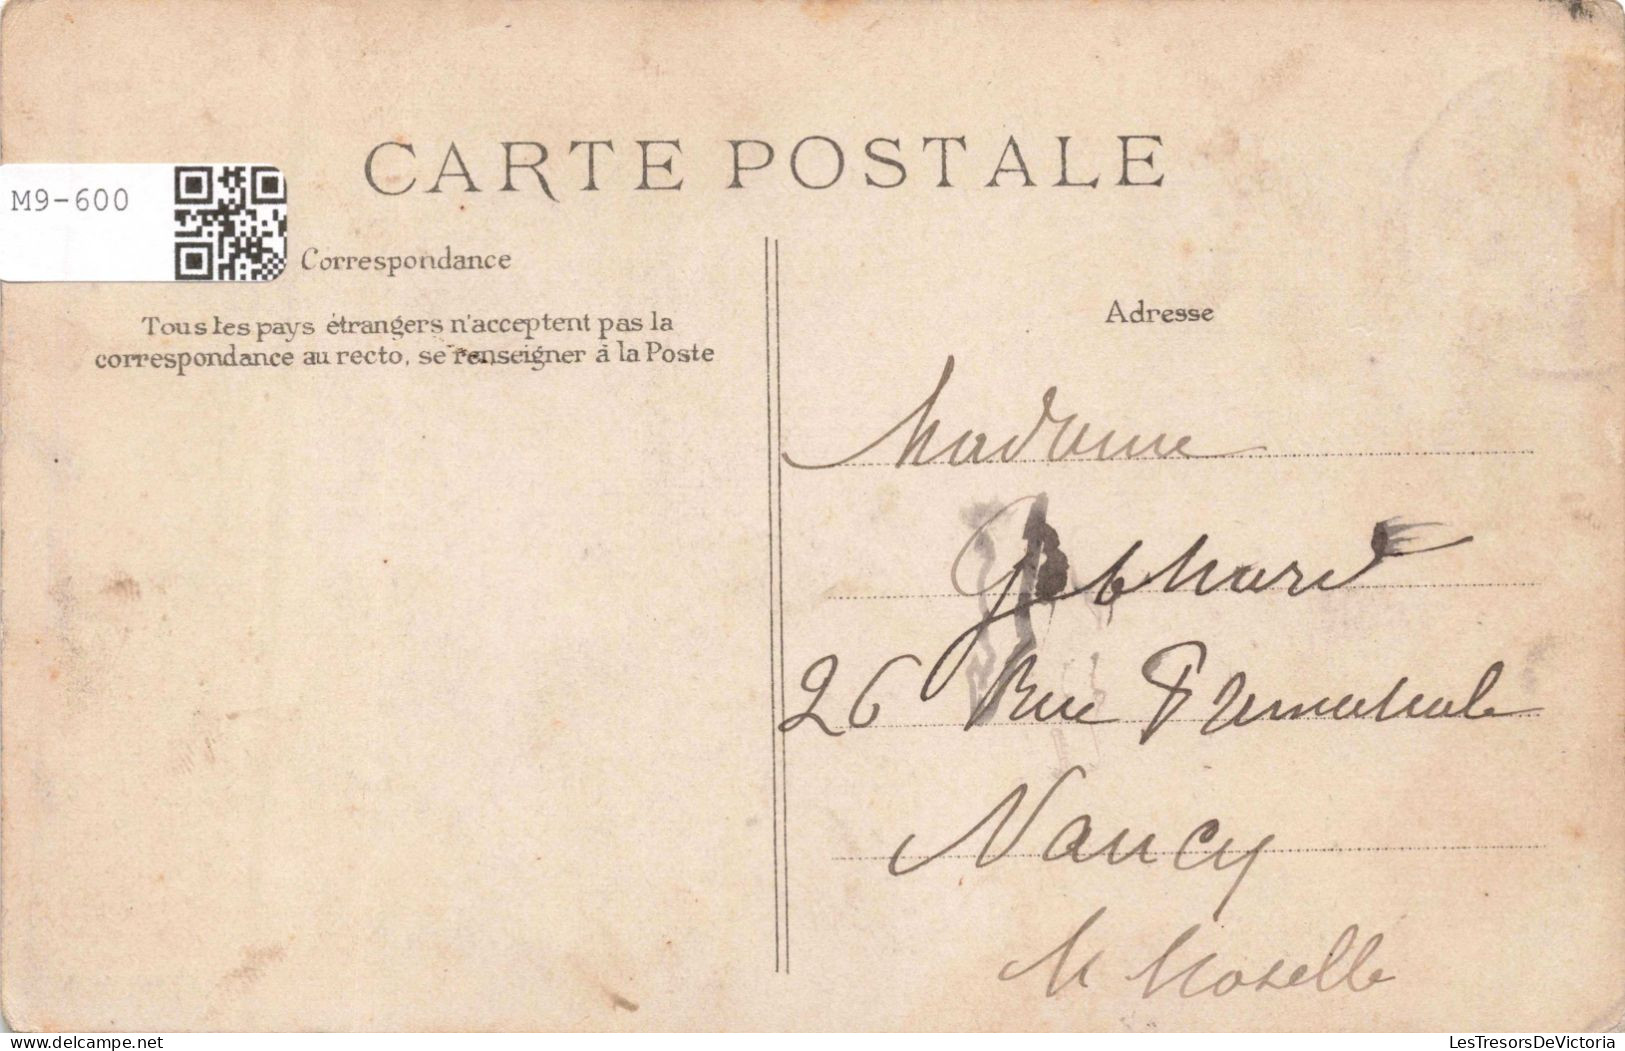 CARTE POSTALE
M9-600
Correspondance
Tous les pays étrangers n'acceptent pas la
correspondance au recto, se renseigner à la Poste
Adresse
Madame
Gebhard
26 Rue
Nancy
M Moselle
delcampe.net
LesTresorsDeVictoria